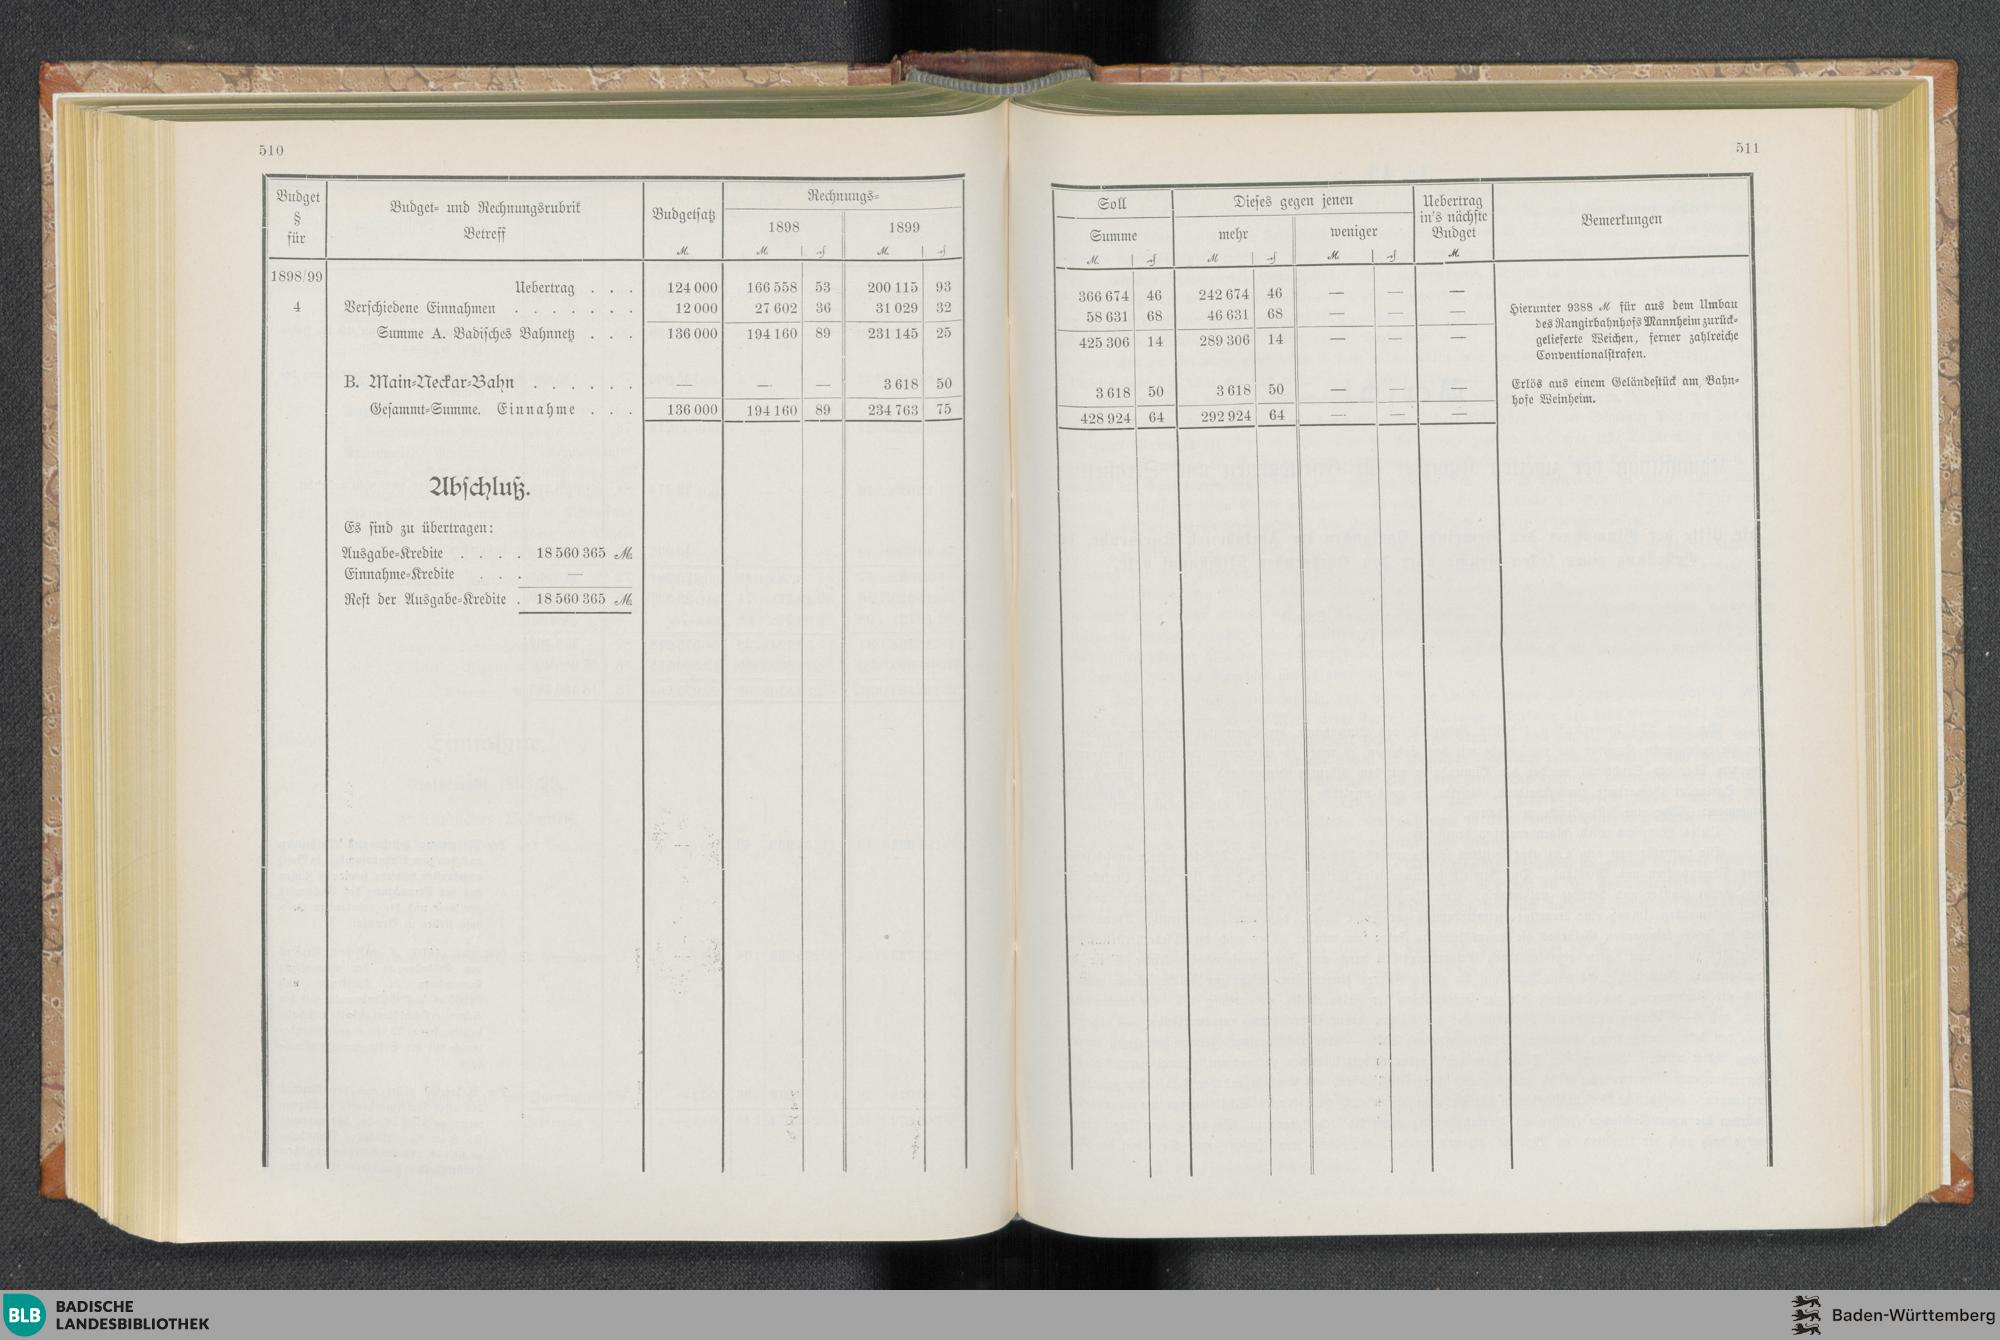 510
Budget
§
für
Budget- und Rechnungsrubrik
Betreff
Budgetsatz
ℳ.
Rechnungs-
1898
1899
ℳ. ₰ ℳ. ₰
1898/99
Uebertrag . . . 124 000 166 558 53 200 115 93
4 Verschiedene Einnahmen . . . . . . . 12 000 27 602 36 31 029 32
Summe A. Badisches Bahnnetz . . . 136 000 194 160 89 231 145 25
B. Main-Neckar-Bahn . . . . . . — — — 3 618 50
Gesammt-Summe. Einnahme . . . 136 000 194 160 89 234 763 75
Abschluß.
Es sind zu übertragen:
Ausgabe-Kredite . . . . 18 560 365 ℳ.
Einnahme-Kredite . . . —
Rest der Ausgabe-Kredite . 18 560 365 ℳ.
511
Soll
Summe
ℳ. ₰
Dieses gegen jenen
mehr
weniger
ℳ. ₰ ℳ. ₰
Uebertrag
in's nächste
Budget
ℳ.
Bemerkungen
366 674 46 242 674 46 — — —
58 631 68 46 631 68 — — —
425 306 14 289 306 14 — — —
3 618 50 3 618 50 — — —
428 924 64 292 924 64 — — —
Hierunter 9388 ℳ für aus dem Umbau
des Rangirbahnhofs Mannheim zurück-
gelieferte Weichen, ferner zahlreiche
Conventionalstrafen.
Erlös aus einem Geländestück am Bahn-
hofe Weinheim.
BLB
BADISCHE
LANDESBIBLIOTHEK
Baden-Württemberg